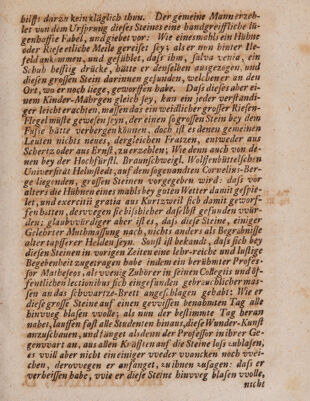 hilfft darzu kein kläglich thun. Der gemeine Mann erzeh-
let von dem Ursprung dieses Steins eine handgreiffliche lü-
genhaffte Fabel, und giebet vor: Wie einesmahls ein Hühne
oder Riese etliche Meile gereiset sey; als er nun hinter Ile-
feld ankommen, und gefühlet, daß ihn, salva venia, ein
Schuh hefftig drücke, hätte er denselben ausgezogen, und
diesen grossen Stein darinnen gefunden, welchen er an den
Ort, wo er noch liege, geworffen habe. Daß dieses aber ei-
nem Kinder-Mährgen gleich sey, kan ein jeder verständi-
ger leicht erachten, massen das ein weidlicher grosser Riesen-
Flegel müste gewesen seyn, der einen so grossen Stein bey dem
Fusse hätte verbergen können, doch ist es denen gemeinen
Leuten nichts neues, dergleichen Fratzen, entweder aus
Schertz oder aus Ernst, zu erzehlen; Wie denn auch von de-
nen bey der Hochfürstl. Braunschweigl. Wolffenbüttelschen
Universität Helmstedt, auf dem sogenandten Cornelius-Ber-
ge liegenden, grossen Steinen vorgegeben wird: daß vor
alters die Hühnen einsmahls bey guten Wetter damit gespie-
let, und exercitii gratia aus Kurtzweil sich damit geworf-
fen hatten, deswegen sie bißhieher daselbst gefunden wür-
den; glaubwürdiger aber ist es, daß diese Steine, einiger
Gelehrter Muthmassung nach, nichts anders als Begräbnisse
alter tapfferer Helden seyn. Sonst ist bekandt, daß sich bey
diesen Steinen in vorigen Zeiten eine lehr-reiche und lustige
Begebenheit zugetragen habe indem ein berühmter Profes-
sor Matheseos, als wenig Zuhörer in seinen Collegiis und öf-
fentlichen lectionibus sich eingefunden gebräuchlicher mas-
sen an das schwartze-Brett angeschlagen gehabt: Wie er
diese grosse Steine auf einen gewissen benahmten Tag alle
hinweg blasen wolle; als nun der bestimmte Tag heran
nahet, lauffen fast alle Studenten hinaus, diese Wunder-Kunst
anzuschauen, und fänget alsdenn der Professor in ihrer Ge-
genwart an, aus allen Kräfften auf die Steine loß zublasen,
es will aber nicht ein einiger weder wancken noch wei-
chen, derowegen er anfänget, zu ihnen zusagen: daß er
verheissen habe, wie er diese Steine hinweg blasen wolle,
nicht